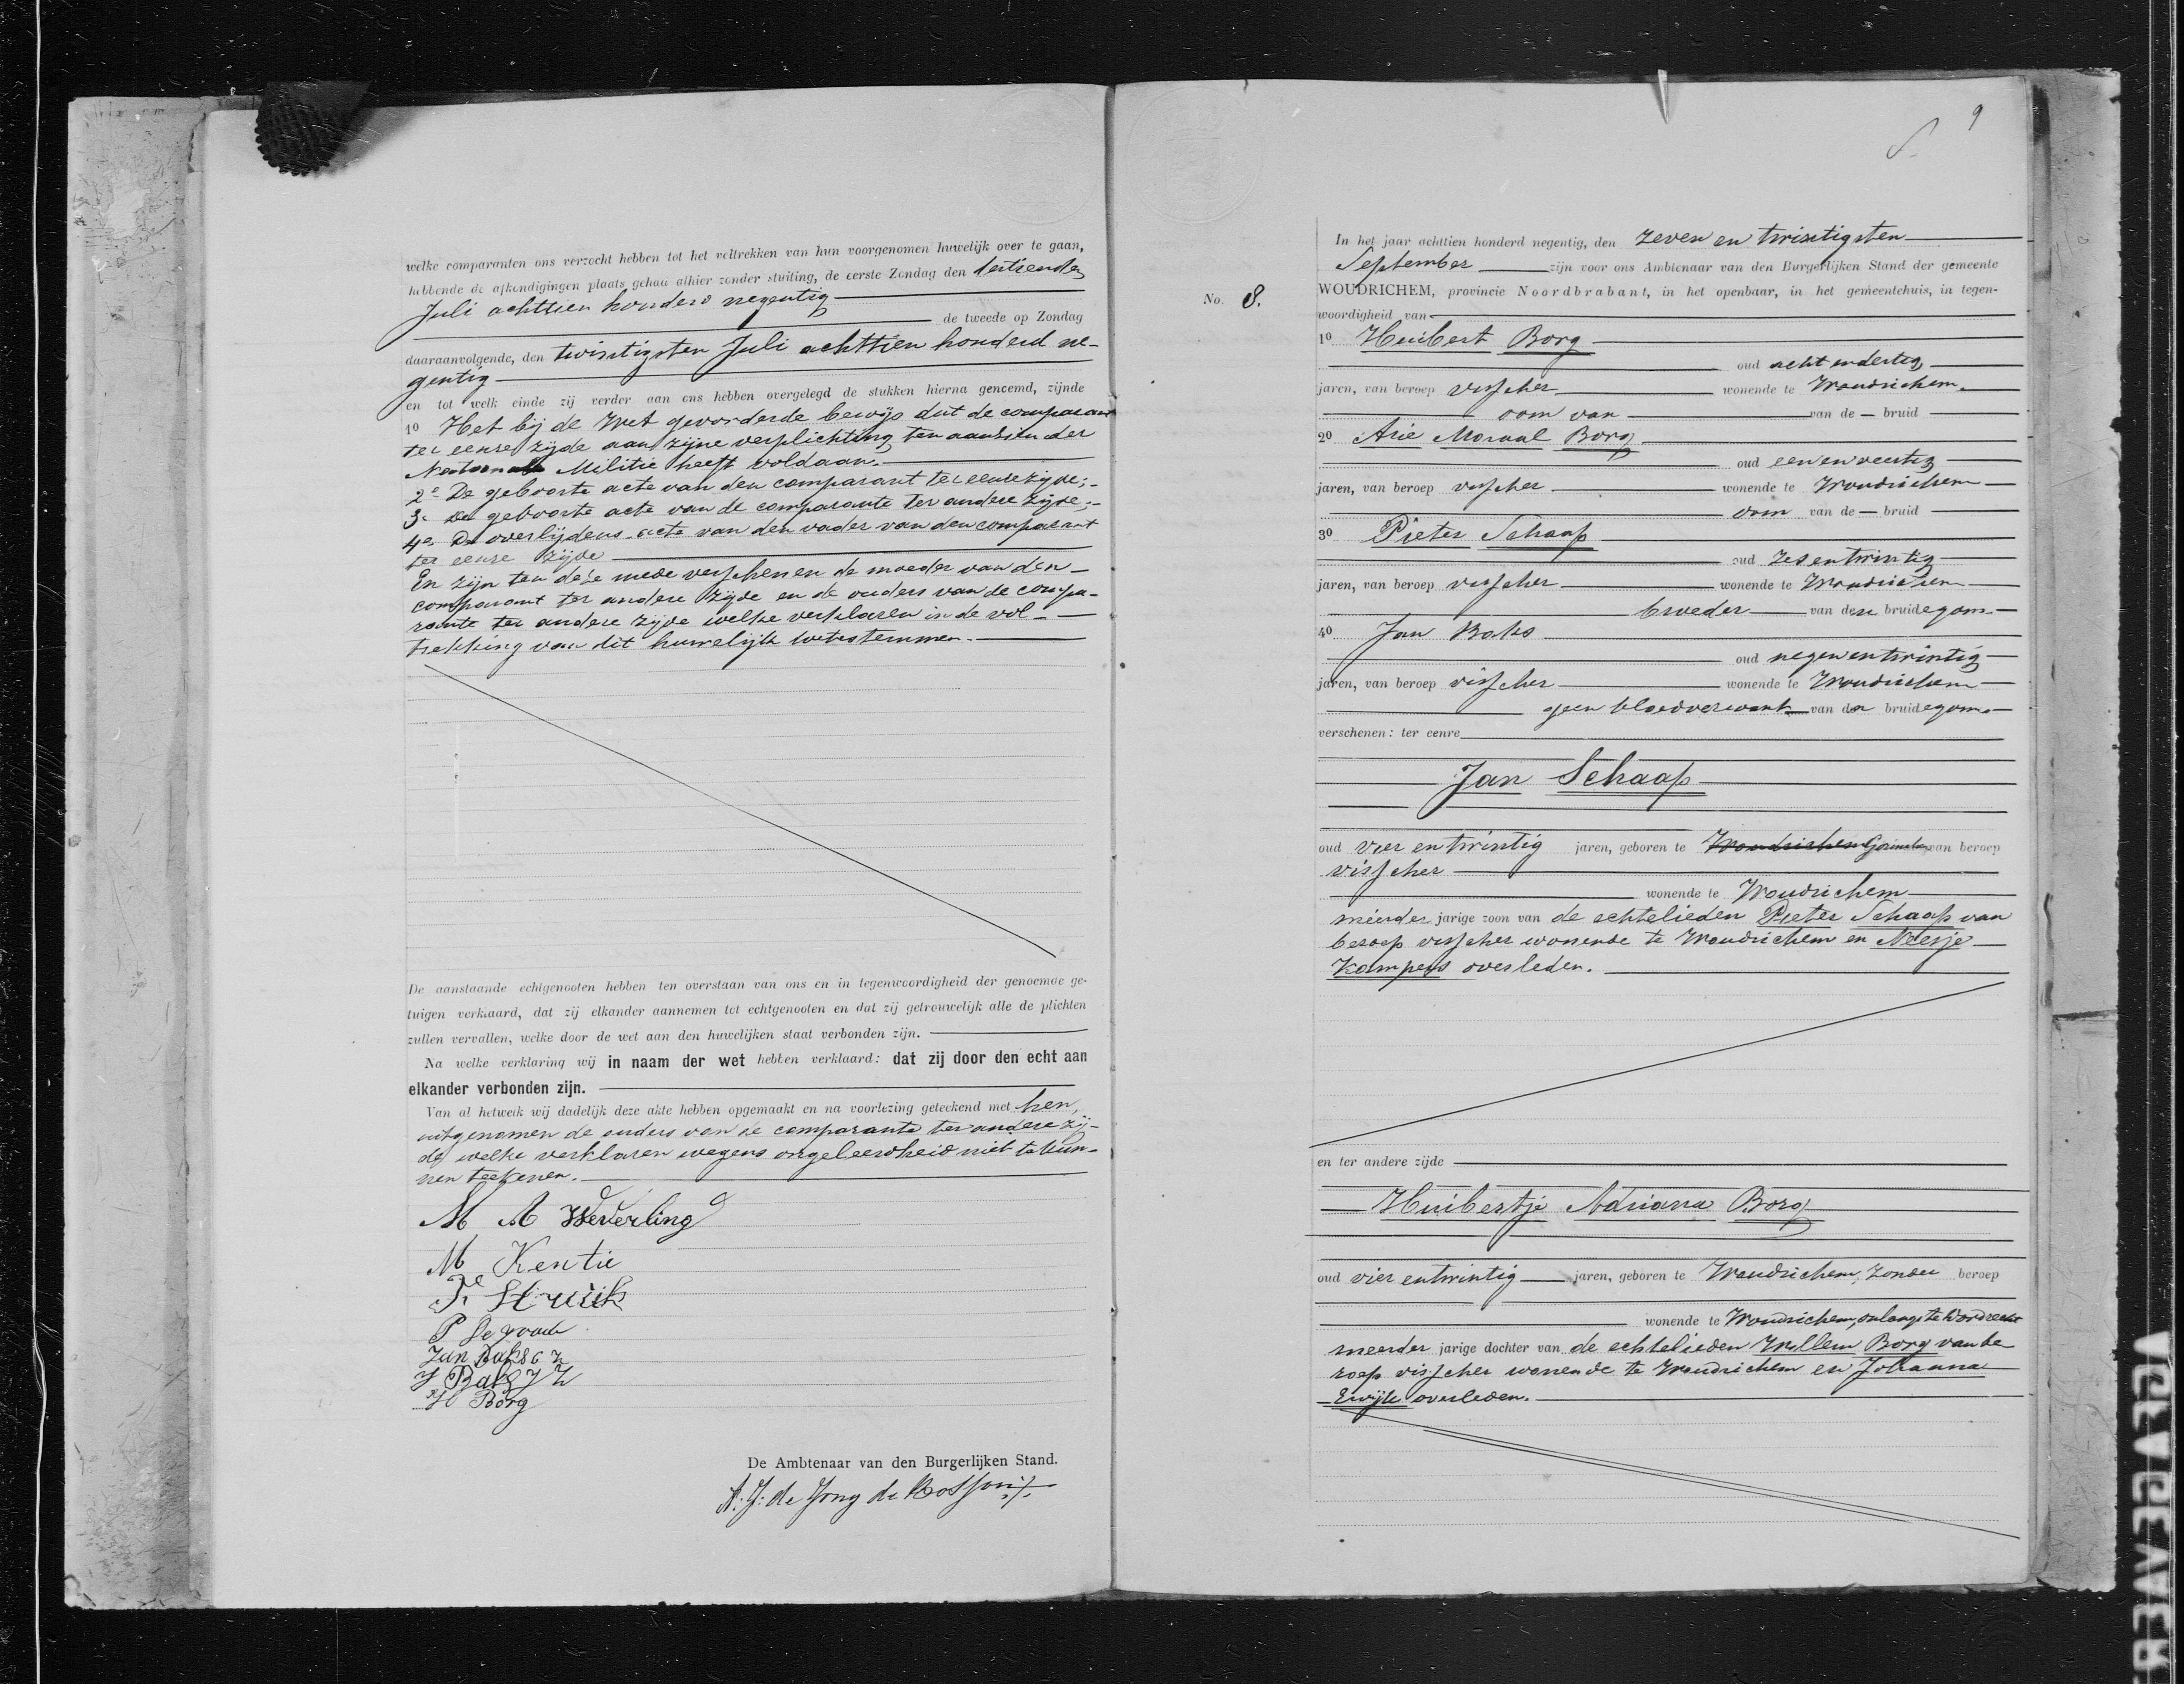 welke comparanten ons verzocht hebben tot het voltrekken van hun voorgenomen huwelijk over te gaan,
hebbende de afkondigingen plaats gehad alhier zonder stuiting, de eerste Zondag den dertienden
Juli achttien honderd negentig
de tweede op Zondag
daaraanvolgende, den twintigsten Juli achttien honderd ne-
gentig
en tot welk einde zij verder aan ons hebben overgelegd de stukken hierna genoemd, zijnde
1o Het bij de Wet gevorderde bewijs dat de comparant
ter eenre zijde aan zijne verplichting ten aanzien der
Nationale Militie heeft voldaan.
2e De geboorte acte van den comparant ter eenre zijde;-
3e De geboorte acte van de comparante ter andere zijde;-
4e De overlijdens acte van den vader van den comparant
ter eenre zijde
En zijn ten deze mede verschenen de moeder van den
comparant ter andere zijde en de ouders van de compa-
rante ter andere zijde welke verklaren in de vol-
trekking van dit huwelijk toetestemmen.
De aanstaande echtgenooten hebben ten overstaan van ons en in tegenwoordigheid der genoemde ge-
tuigen verklaard, dat zij elkander aannemen tot echtgenooten en dat zij getrouwelijk alle de plichten
zullen vervullen, welke door de wet aan den huwelijken staat verbonden zijn.
Na welke verklaring wij in naam der wet hebben verklaard: dat zij door den echt aan
elkander verbonden zijn.
Van al hetwelk wij dadelijk deze akte hebben opgemaakt en na voorlezing geteekend met hen,
uitgenomen de ouders van de comparante ter andere zij-
de welke verklaren wegens ongeleerdheid niet te kun-
nen teekenen.
M A Weverling
M Kentie
Struik
P de graaf
Jan Baks
J Baks J Z
H Borg
De Ambtenaar van den Burgerlijken Stand.
A. J. de Jong de Rosson
9
8.
No. 8.
In het jaar achttien honderd negentig, den zeven en twintigsten
September zijn voor ons Ambtenaar van den Burgerlijken Stand der gemeente
WOUDRICHEM, provincie Noordbrabant, in het openbaar, in het gemeentehuis, in tegen-
woordigheid van
1o Huibert Borg
oud acht en dertig
jaren, van beroep visscher wonende te Woudrichem
oom van van de bruid
2o Arie Moraal Borg
oud een en veertig
jaren, van beroep visscher wonende te Woudrichem
oom van de bruid
3o Pieter Schaap
oud zes en twintig
jaren, van beroep visscher wonende te Woudrichem
broeder van den bruidegom
4o Jan Baks
oud negen en twintig
jaren, van beroep visscher wonende te Woudrichem
geen bloedverwant van den bruidegom
verschenen: ter eenre
Jan Schaap
oud vier en twintig jaren, geboren te Woudrichem Gorinchem van beroep
visscher
wonende te Woudrichem
meerder jarige zoon van de echtelieden Pieter Schaap van
beroep visscher wonende te Woudrichem en Neesje
Kampens overleden.
en ter andere zijde
Huibertje Adriana Borg
oud vier en twintig jaren, geboren te Woudrichem, zonder beroep
wonende te Woudrichem, onlangs te Dordrecht
meerder jarige dochter van de echtelieden Willem Borg van be
roep visscher wonende te Woudrichem en Johanna
Ewijk overleden.